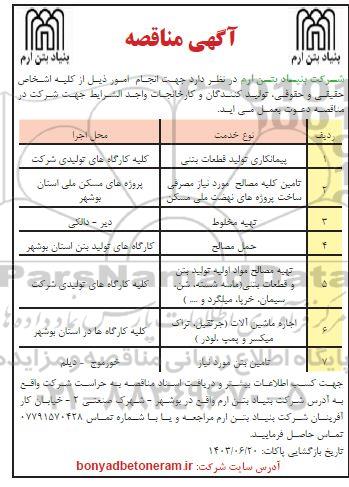 آگهی مناقصه
بنیاد بتن ارم
بنیاد بتن ارم
شرکت بنیاد بتن ارم در نظر دارد جهت انجام امور ذیل از کلیه اشخاص
حقیقی و حقوقی، تولید کنندگان و کارخانجات واجد الشرایط جهت شرکت در
مناقصه دعوت بعمل می اید.
ردیف نوع خدمت محل اجرا
۱ پیمانکاری تولید قطعات بتنی کلیه کارگاه های تولیدی شرکت
۲ تامین کلیه مصالح مورد نیاز مصرفی ساخت پروژه های نهضت ملی مسکن پروژه های مسکن ملی استان بوشهر
۳ تهیه مخلوط دیر - دالکی
۴ حمل مصالح کارگاه های تولید بتن استان بوشهر
۵ تهیه مصالح مواد اولیه تولید بتن و قطعات بتنی(ماسه شسته، شن، سیمان، خرپا، میلگرد و .... ) کلیه کارگاه های تولیدی شرکت
۶ اجاره ماشین آلات (جرثقیل، تراک میکسر و پمپ ،لودر ) کلیه کارگاه ها در استان بوشهر
۷ تامین بتن مورد نیاز خورموج - دیلم
جهت کسب اطلاعات بیشتر و دریافت اسناد مناقصه به حراست شرکت واقع
به آدرس شرکت بنیاد بتن ارم واقع در بوشهر - شهرک صنعتی ۲ - خیابان کار
آفرینان شرکت بنیاد بتن ارم مراجعه و یا با شماره تماس ۰۷۷۹۱۵۷۰۴۲۸
تماس حاصل فرمایید.
تاریخ بازگشایی پاکات: ۱۴۰۳/۰۶/۲۰
آدرس سایت شرکت: bonyadbetoneram.ir